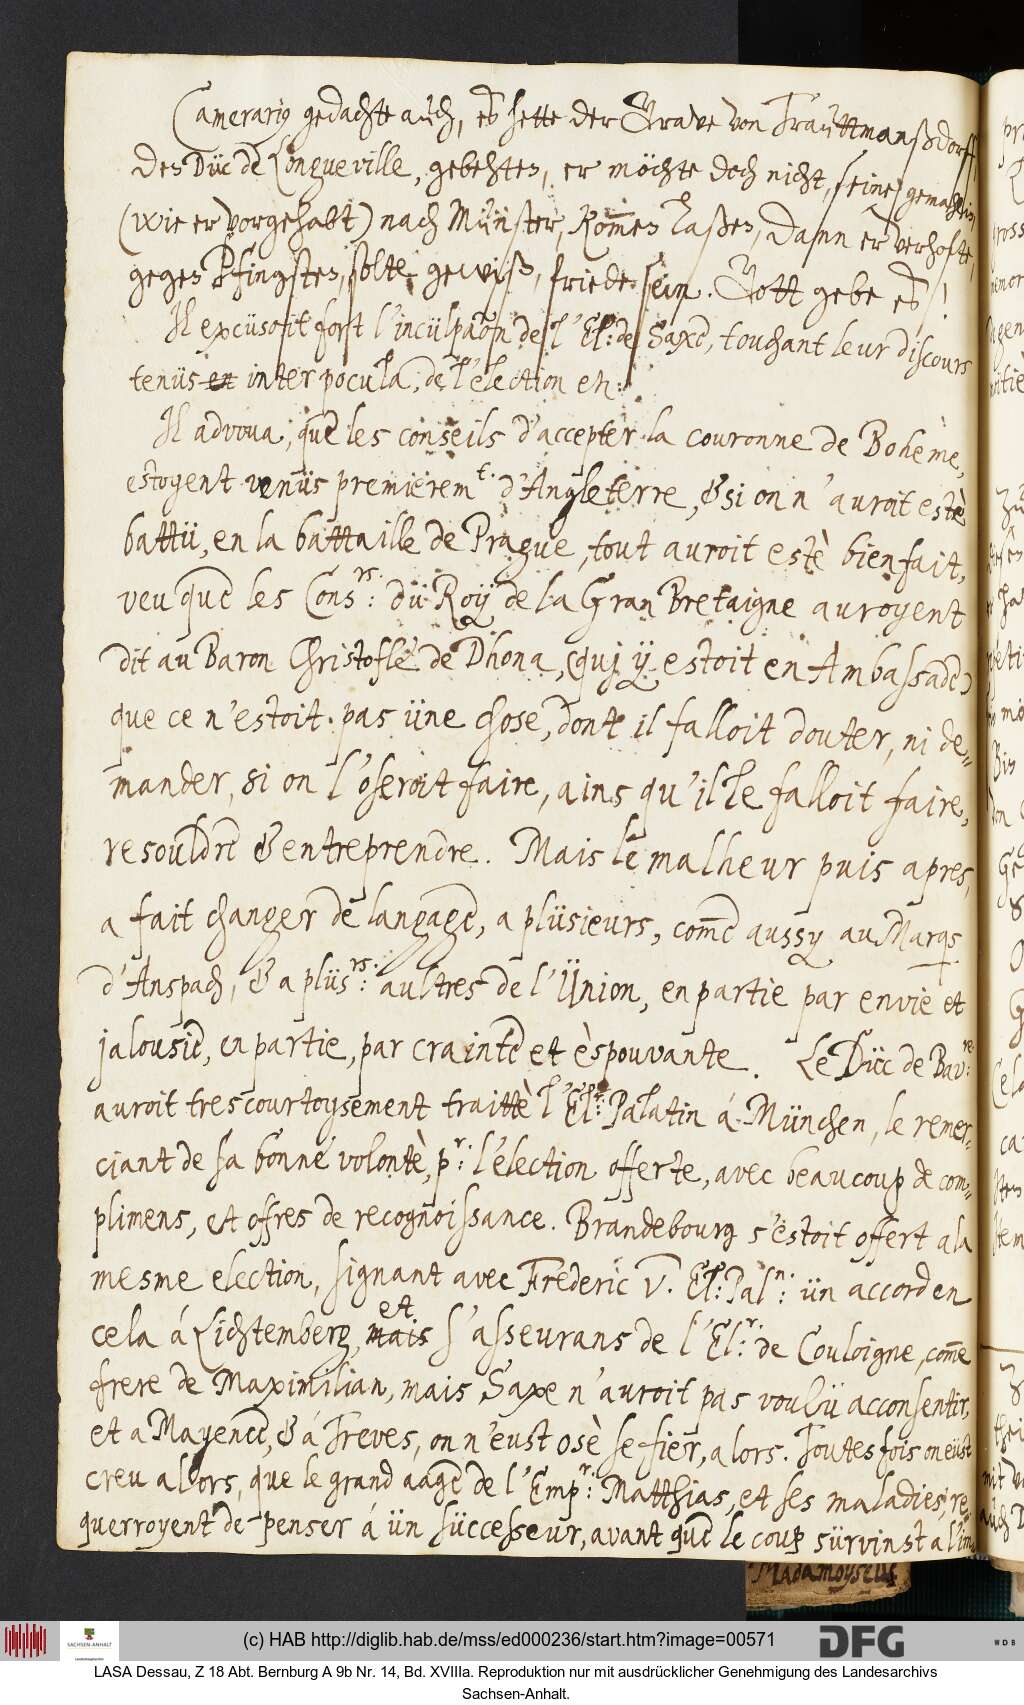 Camerarius gedachte auch, es hette der Grave von Trauttmanßdorff,
den Düc de Longueville, gebehten, er möchte doch nicht, seine gemahlin,
(wie er vorgehabt) nach Münster, kom̄en laßen, dann er verhofte,
gegen Pfingsten, solte gewiß, friede sein. Gott gebe es!
Il excüsoit fort l'incülpaõn de l'El: de Saxe, touchant leur discours
tenüs en inter pocula, de l'election etc:
Il advoua, que les conseils d'accepter la couronne de Bohéme,
estoyent venüs premierem.t d'Angleterre, & si on n'auroit estè
battü, en la battaille de Prague, tout auroit estè bien fait,
veu que les Cons:rs. dü Roÿ de la Gran Bretaigne auroyent
dit au Baron Christofle de Dhona, (quj ÿ estoit en Ambassade)
que ce n'estoit pas üne chose, dont il falloit douter, ni de=
mander, si on l'oseroit faire, ains qu'il le falloit faire,
resouldre & entreprendre. Mais le malheur puis apres,
a fait changer de langage, a plüsieurs, com̄e aussy au Marqs
d'Anspach, & a plüs:rs. aultres de l'Ünion, en partie par envie et
jalousie, en partie, par crainte et èspouvante. Le Düc de Bav:re.
auroit trescourtoysement traittè l'El: Palatin á München, le remer=
ciant de sa bonne volontè, p:r. l'election offerte, avec beaucoup de com=
plimens, et offres de recognoissance. Brandebourg s'estoit offert a la
mesme election, signant avec Frederic V. El: Pal:n. ün accord en
cela á Lichtemberg, mais
et
s'asseurans de l'El:r. de Couloigne, com̄e
frere de Maximilian, mais Saxe n'auroit pas voulü acconsentir,
et a Mayence, & á Treves, on n'eust osè se fier, alors. Toutesfois on eüst
creu alors, que le grand aage de l'Emp:r. Matthias, et ses maladies, re=
querroyent de penser á ün sücceseur, avant que le coup sürvinst a l'im=
Madamoyselle
(c) HAB http://diglib.hab.de/mss/ed000236/start.htm?image=00571
SACHSEN-ANHALT
DFG
WDB
LASA Dessau, Z 18 Abt. Bernburg A 9b Nr. 14, Bd. XVIIIa. Reproduktion nur mit ausdrücklicher Genehmigung des Landesarchivs
Sachsen-Anhalt.